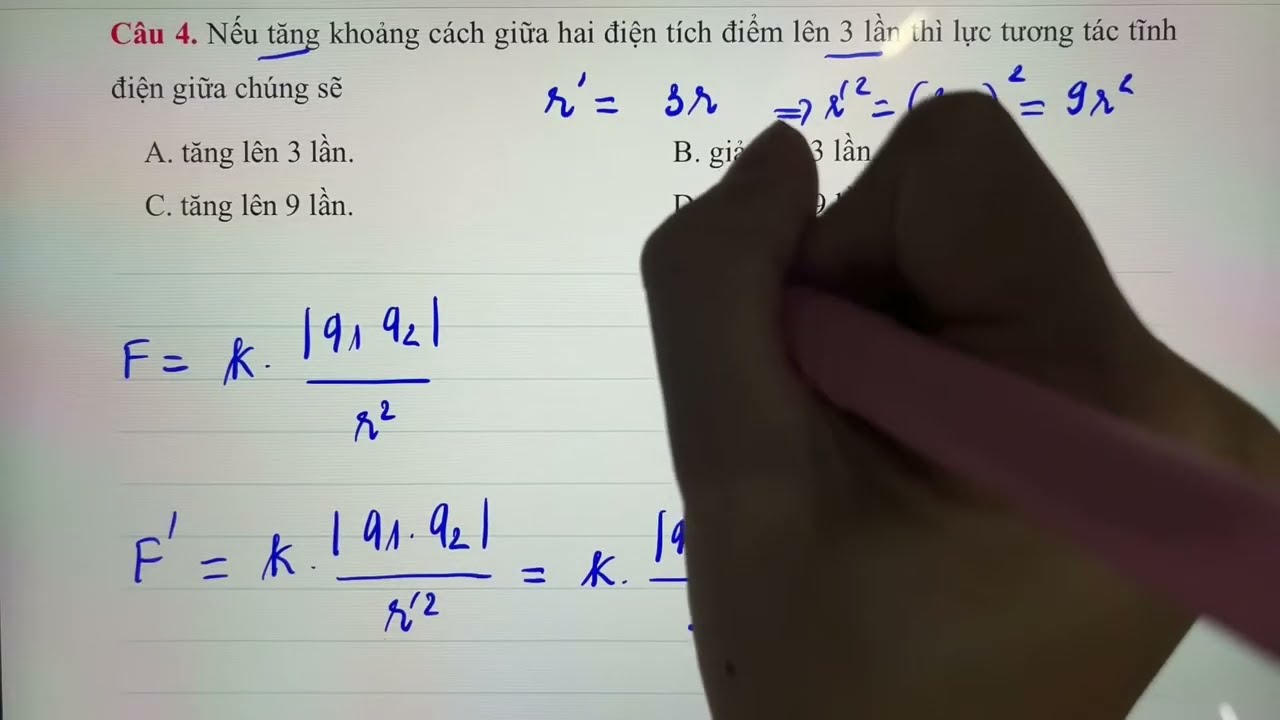 Câu 4. Nếu tăng khoảng cách giữa hai điện tích điểm lên 3 lần thì lực tương tác tĩnh
điện giữa chúng sẽ
r' = 3r ⇒ r'² = ( )² = 9r²
A. tăng lên 3 lần. B. 3 lần
C. tăng lên 9 lần. 9
F = k. |q₁ q₂| / r²
F' = k. |q₁. q₂| / r'² = k. |q